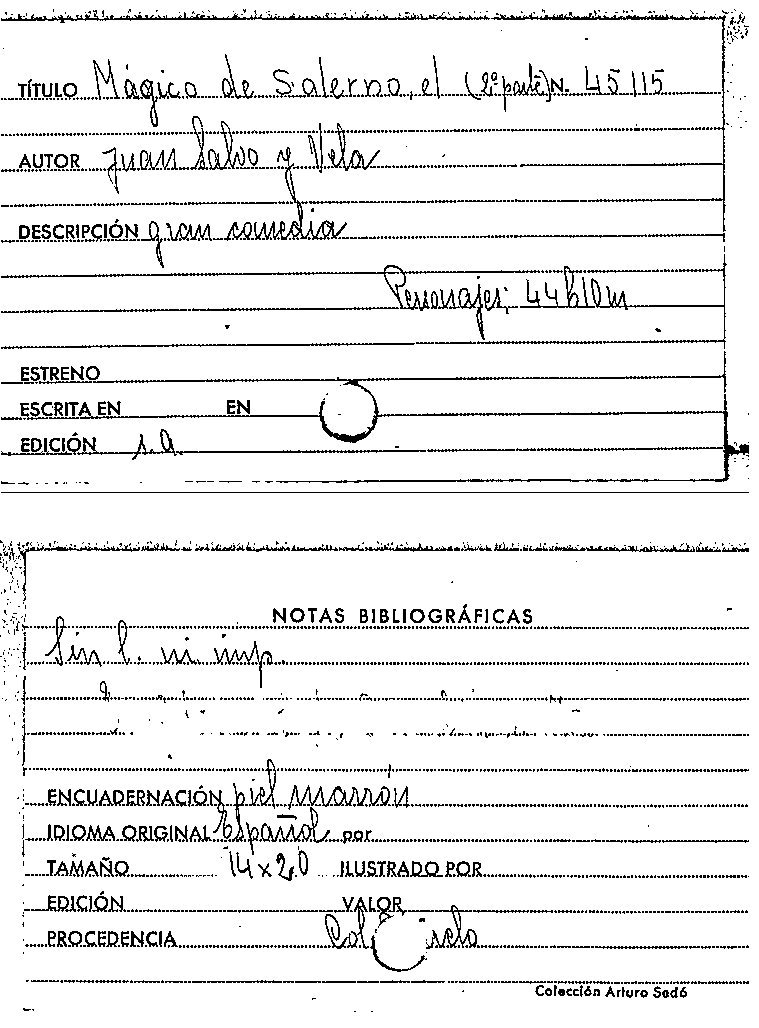 TÍTULO Mágico de Salerno, el (2ª parte) N. 45115
AUTOR Juan Salvo y Vela
DESCRIPCIÓN gran comedia
Personajes: 44h10m
ESTRENO
ESCRITA EN EN
EDICIÓN s.a.
NOTAS BIBLIOGRÁFICAS
Sin l. ni imp.
ENCUADERNACIÓN piel marrón
IDIOMA ORIGINAL Español por
TAMAÑO 14x20 ILUSTRADO POR
EDICIÓN VALOR
PROCEDENCIA Col.
Colección Arturo Sedó